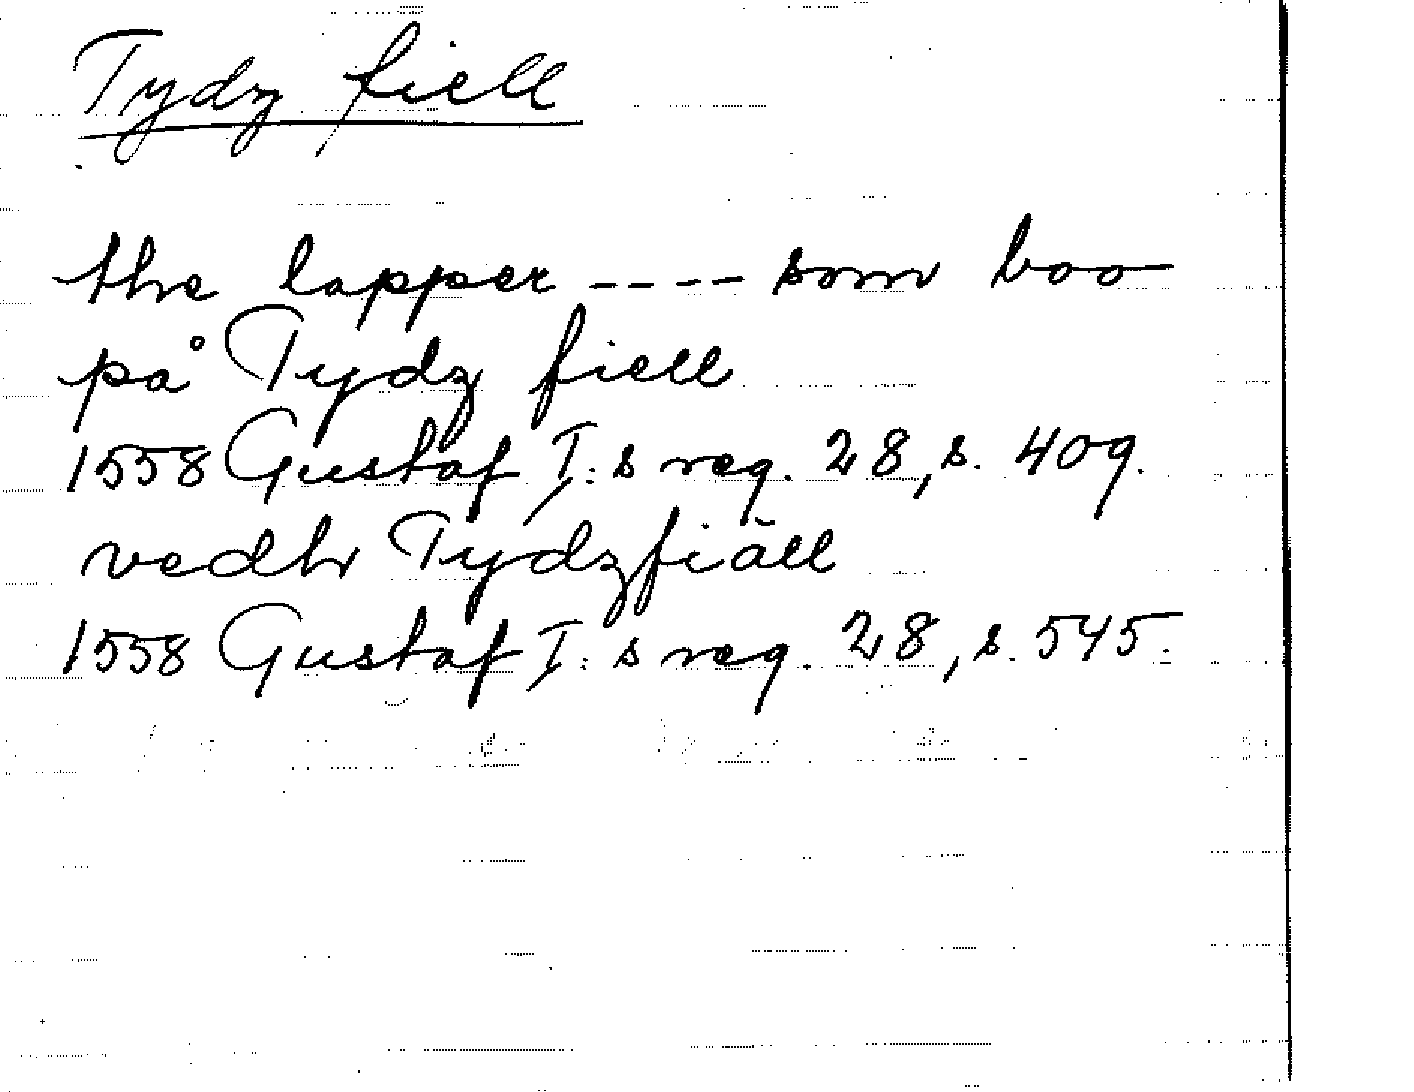 Tydz fiell
the lapper ---- som boo
på Tydz fiell
1558 Gustaf I:s reg. 28, s. 409.
vedh Tydzfiäll
1558 Gustaf I:s reg. 28, s. 545.